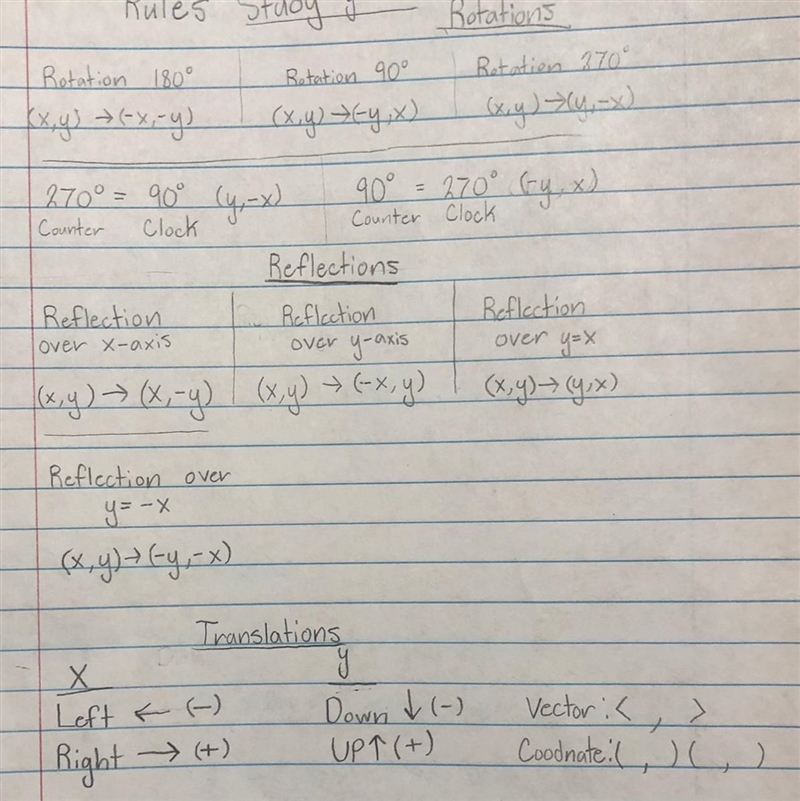 Rules Study
Rotations
Rotation 180° Rotation 90° Rotation 270°
(x,y) → (-x,-y) (x,y) → (-y,x) (x,y) → (y,-x)
270° = 90° (y,-x) 90° = 270° (-y,x)
Counter Clock Counter Clock
Reflections
Reflection Reflection Reflection
over x-axis over y-axis over y=x
(x,y) → (x,-y) (x,y) → (-x,y) (x,y) → (y,x)
Reflection over
y= -x
(x,y) → (-y,-x)
Translations
X y
Left ← (-) Down ↓ (-) Vector: < , >
Right → (+) UP ↑ (+) Coodnate: ( , ) ( , )